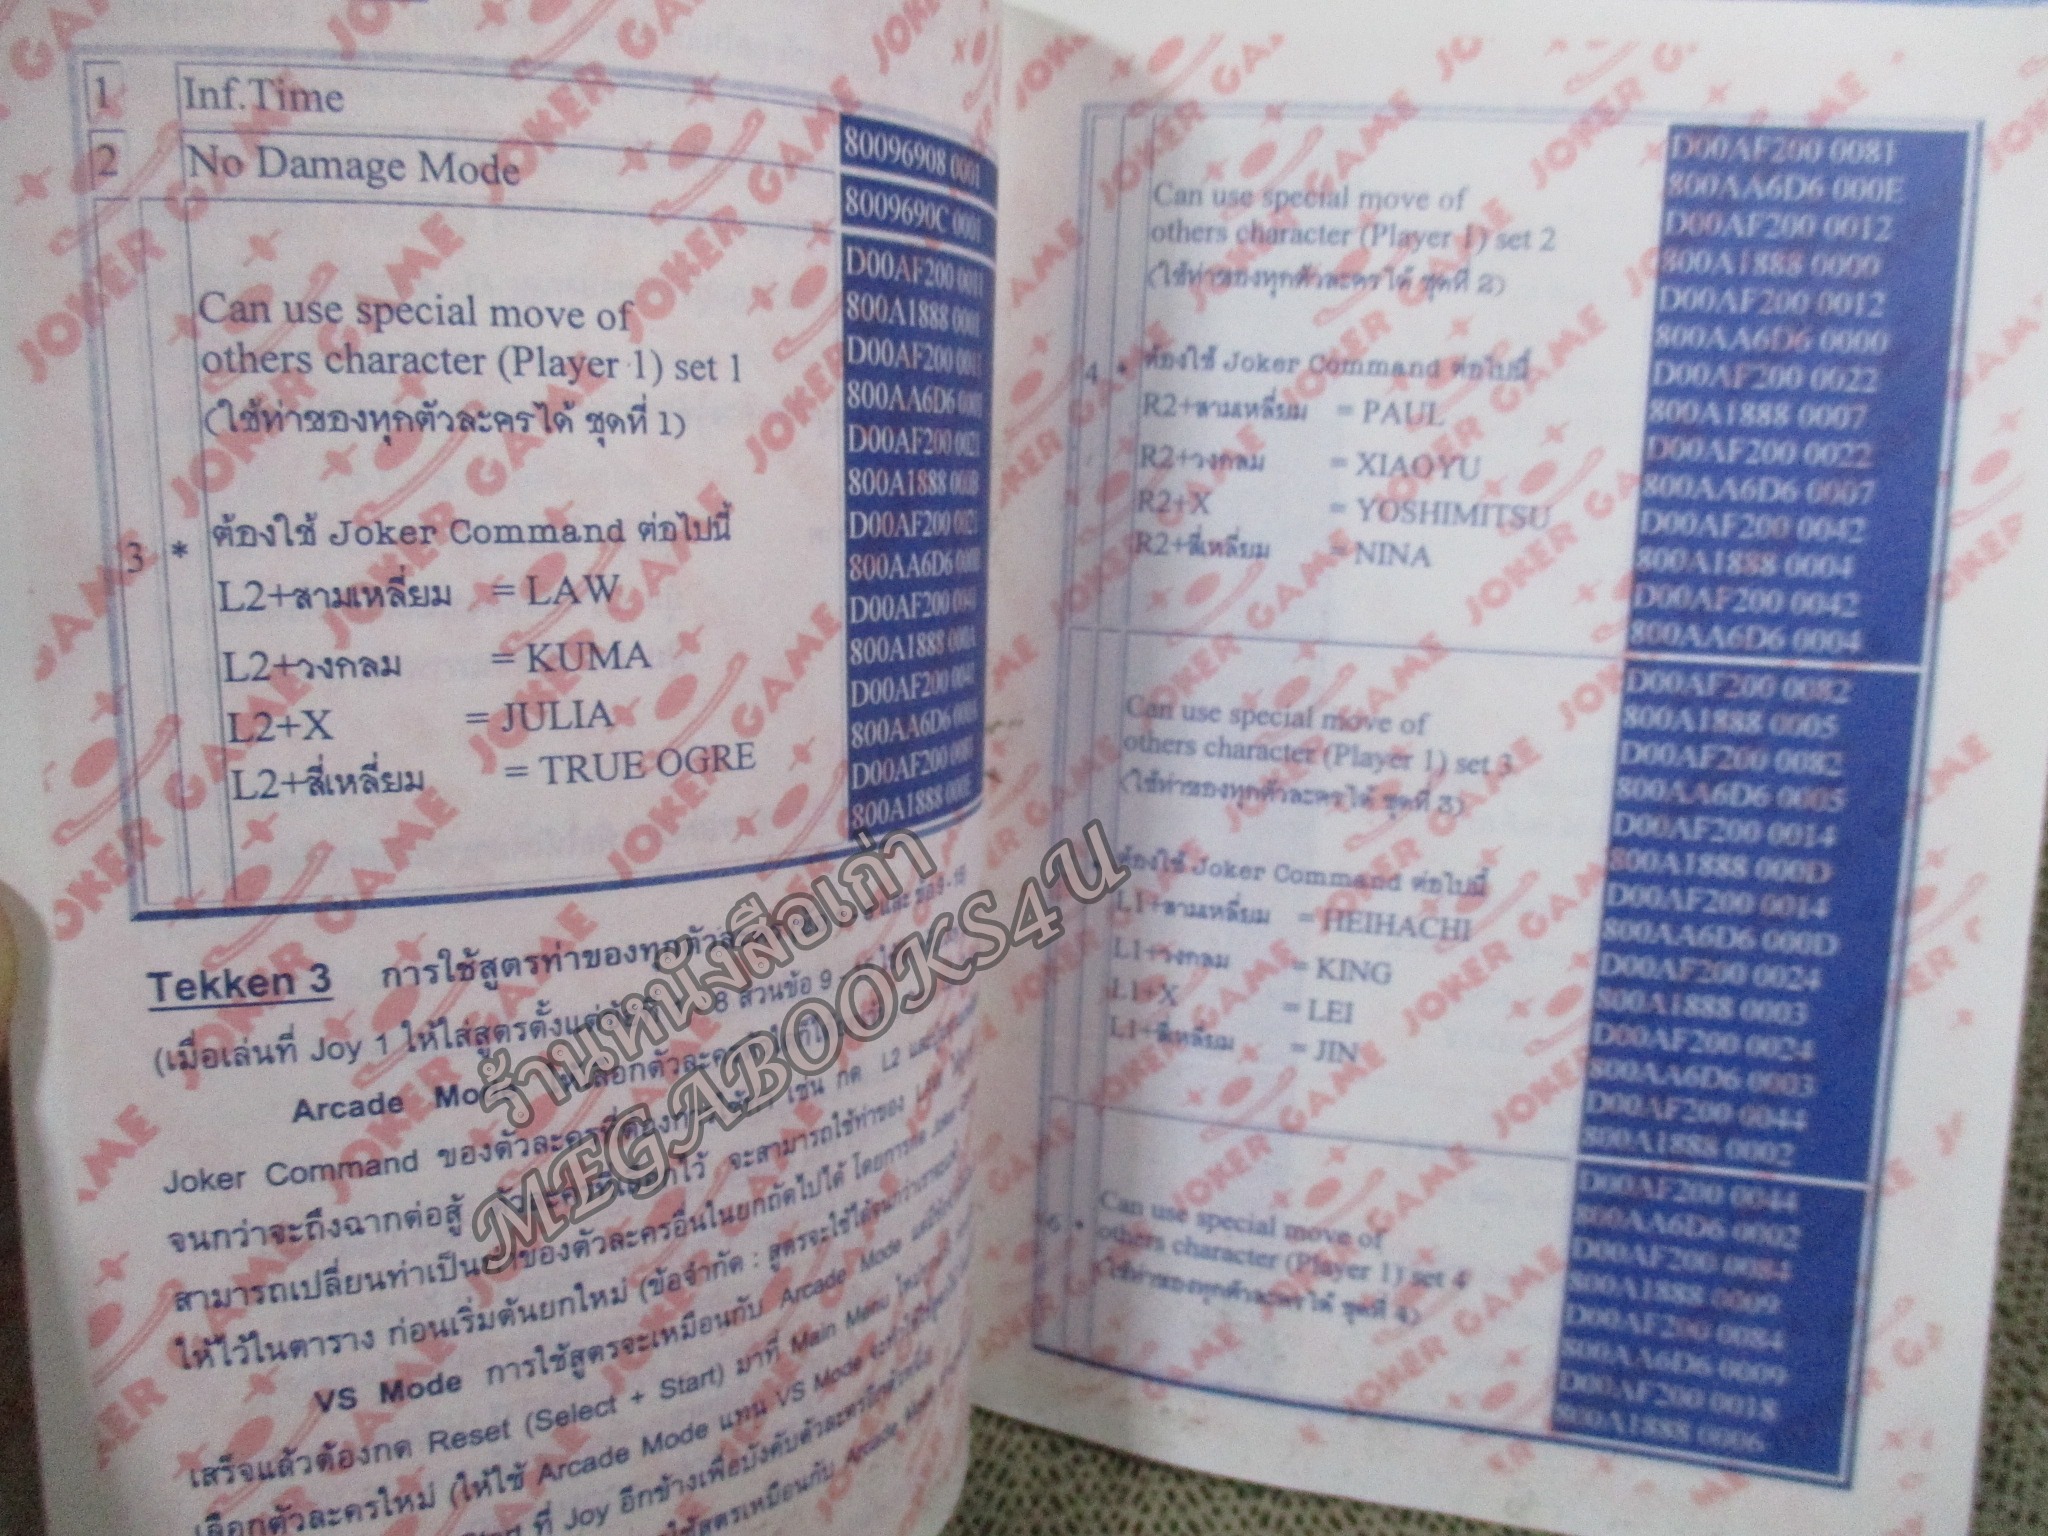 1 Inf.Time
2 No Damage Mode
80096908 0001
8009690C 0001
Can use special move of
others character (Player 1) set 1
(ใช้ท่าของทุกตัวละครได้ ชุดที่ 1)
3 * ต้องใช้ Joker Command ต่อไปนี้
L2+สามเหลี่ยม = LAW
L2+วงกลม = KUMA
L2+X = JULIA
L2+สี่เหลี่ยม = TRUE OGRE
D00AF200 0011
800A1888 0001
D00AF200 0011
800AA6D6 0001
D00AF200 0021
800A1888 000B
D00AF200 0021
800AA6D6 000B
D00AF200 0041
800A1888 000A
D00AF200 0041
800AA6D6 000A
D00AF200 0081
800A1888 000E
Tekken 3 การใช้สูตรท่าของทุกตัว
(เมื่อเล่นที่ Joy 1 ให้ใส่สูตรตั้งแต่ 8 ส่วนข้อ 9
Arcade
Joker Command ของตัวละครที่ต้องการ เช่น กด L2
จนกว่าจะถึงฉากต่อสู้ จะสามารถใช้ท่าของ LAW
สามารถเปลี่ยนท่าเป็น ของตัวละครอื่นในยกถัดไปได้ โดยการกด
ให้ไว้ในตาราง ก่อนเริ่มต้นยกใหม่ (ข้อจำกัด : สูตรจะใช้ได้จนกว่า
VS Mode การใช้สูตรจะเหมือนกับ Arcade Mode
เสร็จแล้วต้องกด Reset (Select + Start) มาที่ Main Menu
เลือกตัวละครใหม่ (ให้ใช้ Arcade Mode แทน VS Mode
ที่ Joy อีกข้างเพื่อบังคับตัวละคร
Arcade
ร้านหนังสือเก่า
MEGABOOKS4U
Can use special move of
others character (Player 1) set 2
(ใช้ท่าของทุกตัวละครได้ ชุดที่ 2)
4 * ต้องใช้ Joker Command ต่อไปนี้
R2+สามเหลี่ยม = PAUL
R2+วงกลม = XIAOYU
R2+X = YOSHIMITSU
R2+สี่เหลี่ยม = NINA
D00AF200 0081
800AA6D6 000E
D00AF200 0012
800A1888 0000
D00AF200 0012
800AA6D6 0000
D00AF200 0022
800A1888 0007
D00AF200 0022
800AA6D6 0007
D00AF200 0042
800A1888 0004
D00AF200 0042
800AA6D6 0004
Can use special move of
others character (Player 1) set 3
(ใช้ท่าของทุกตัวละครได้ ชุดที่ 3)
ต้องใช้ Joker Command ต่อไปนี้
L1+สามเหลี่ยม = HEIHACHI
L1+วงกลม = KING
L1+X = LEI
L1+สี่เหลี่ยม = JIN
D00AF200 0082
800A1888 0005
D00AF200 0082
800AA6D6 0005
D00AF200 0014
800A1888 000D
D00AF200 0014
800AA6D6 000D
D00AF200 0024
800A1888 0003
D00AF200 0024
800AA6D6 0003
D00AF200 0044
800A1888 0002
6 * Can use special move of
others character (Player 1) set 4
(ใช้ท่าของทุกตัวละครได้ ชุดที่ 4)
D00AF200 0044
800AA6D6 0002
D00AF200 0084
800A1888 0009
D00AF200 0084
800AA6D6 0009
D00AF200 0018
800A1888 0006
JOKER GAME